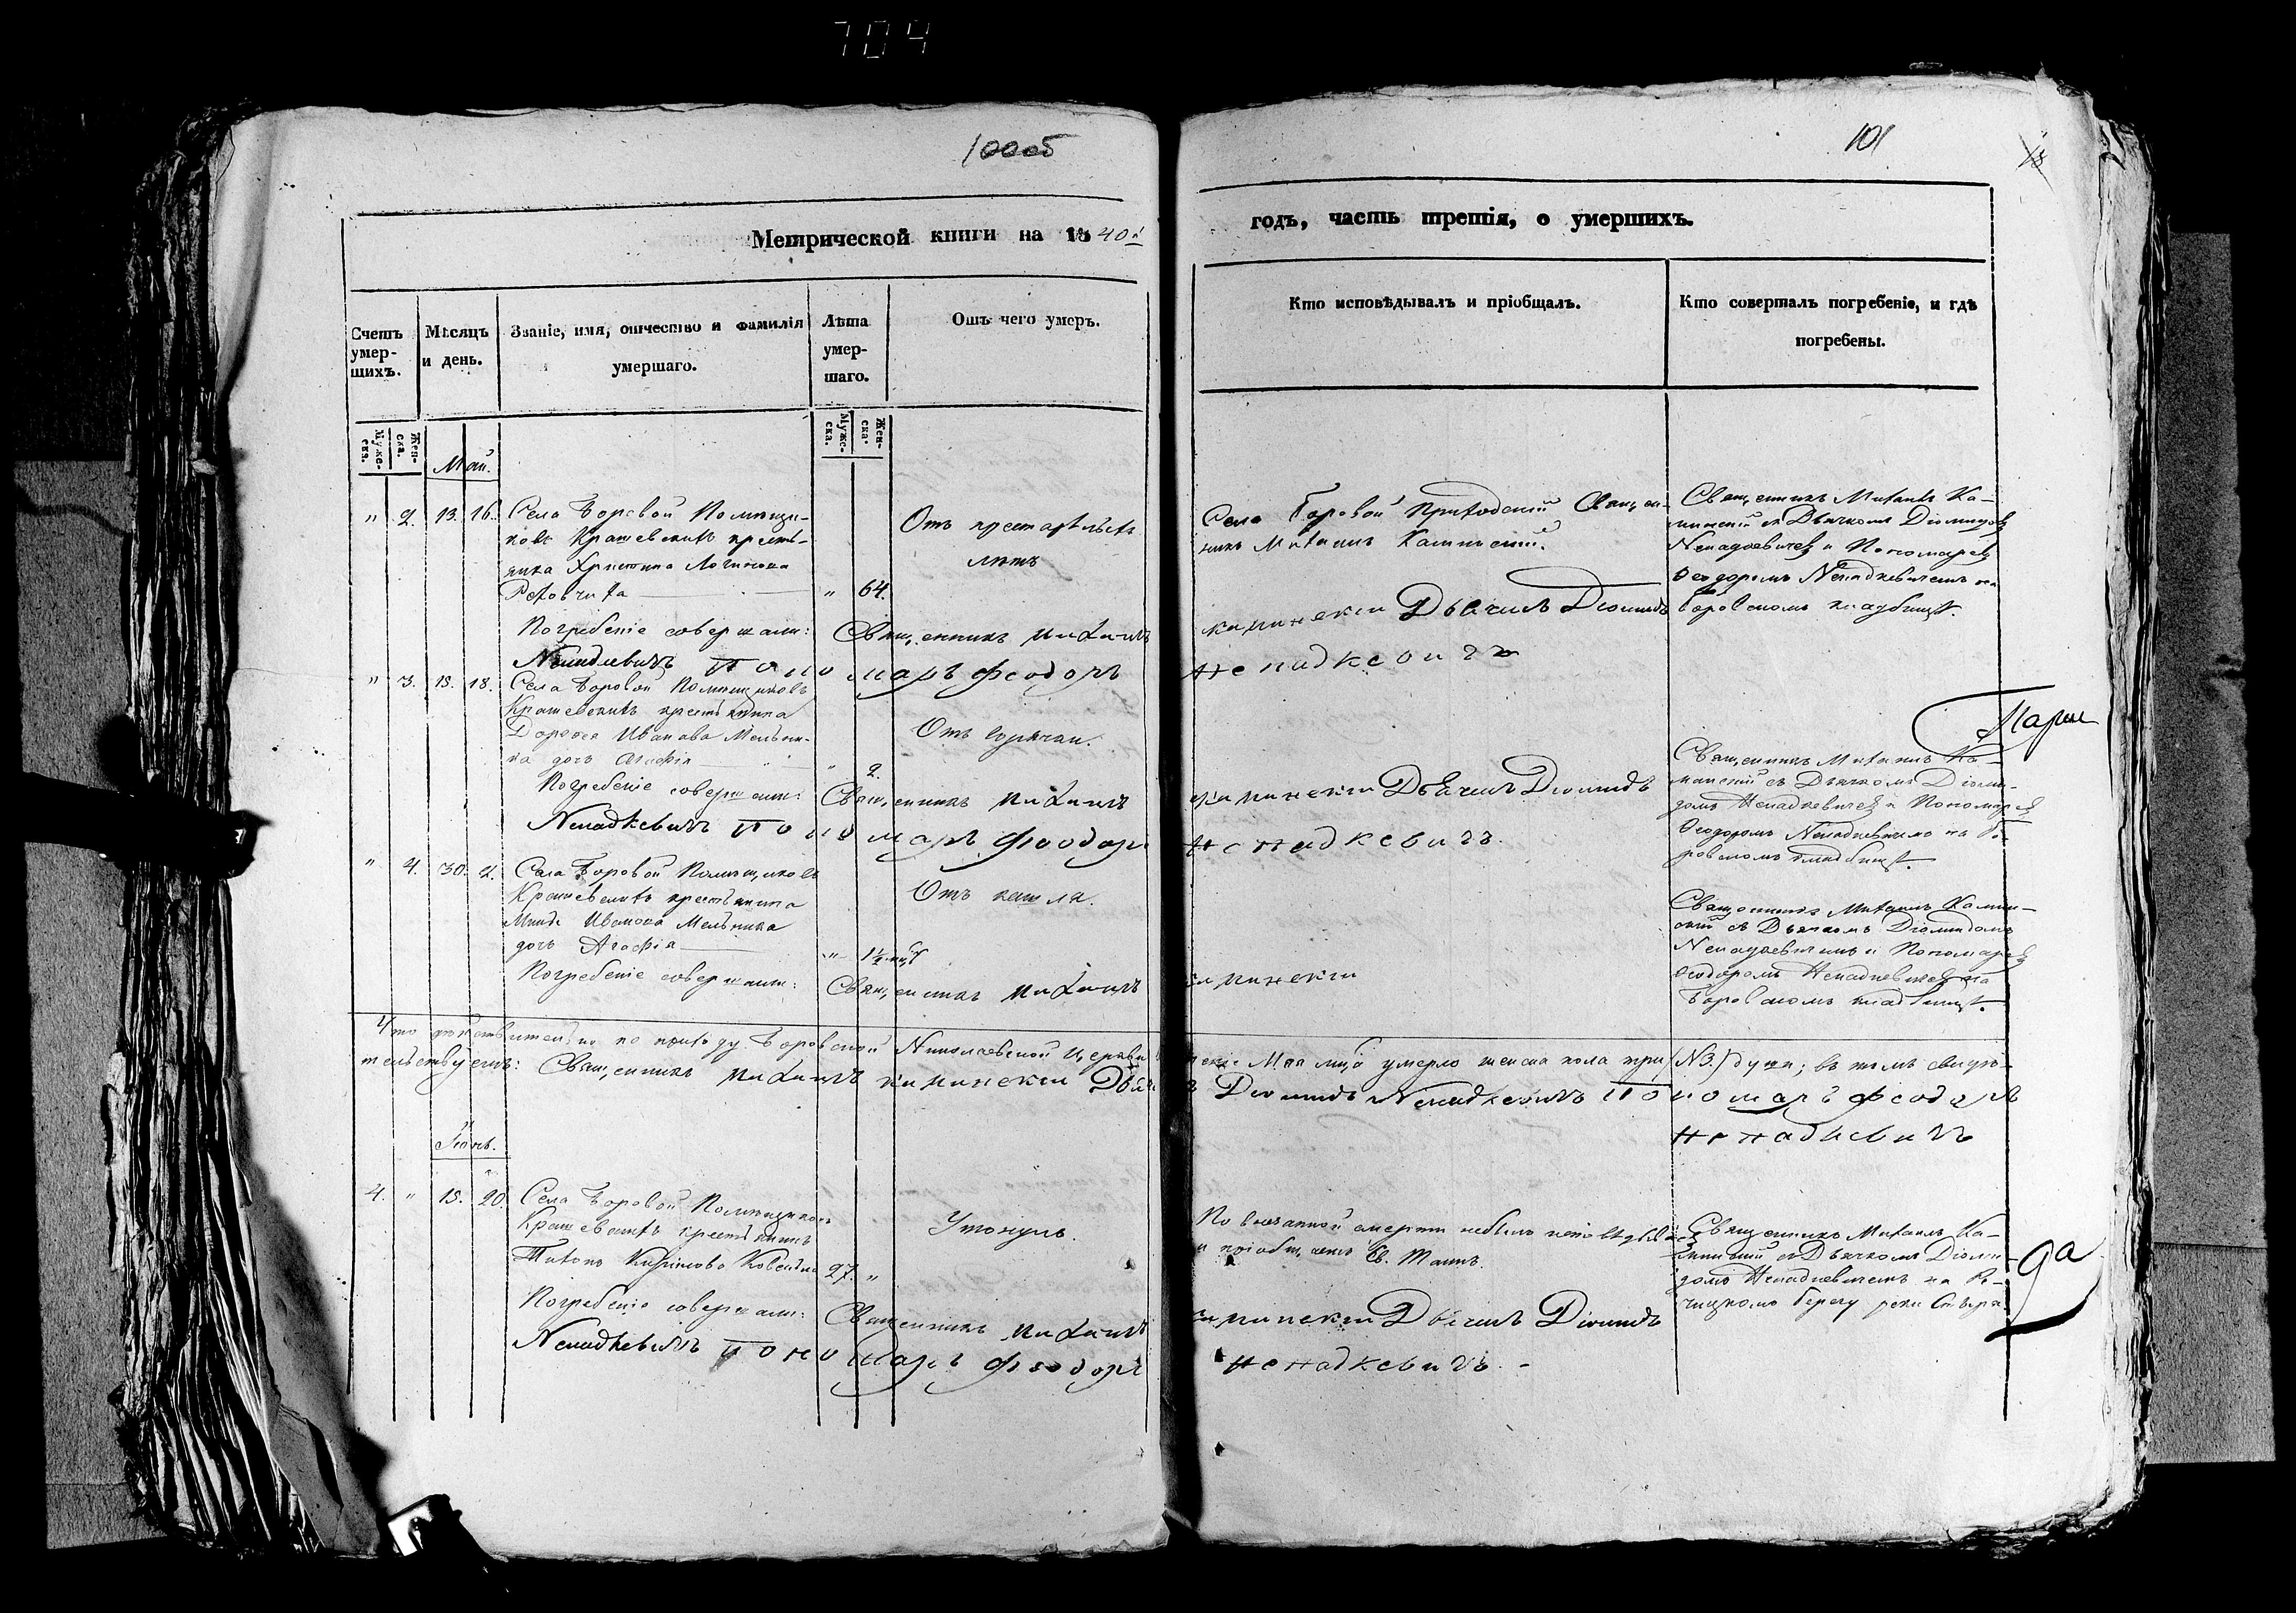 704
100об
101
Метрической книги на 1840й
годъ, часть третія, о умершихъ.
Счетъ умер-
щихъ.
Мѣсяцъ
и день.
Званіе, имя, отчество и фамилія
умершаго.
Лѣта
умер-
шаго.
Отъ чего умеръ.
Кто исповѣдывалъ и пріобщалъ.
Кто совершалъ погребеніе, и гдѣ
погребены.
Муже-
ска.
Жен-
ска.
Муже-
ска.
Жен-
ска.
Май.
" 2. 13. 16.
Села Боровой Помѣщи-
ковъ Крашевскихъ кресть-
янка Христина Логинова
" 64.
Отъ престарѣлыхъ
лѣтъ
Села Боровой Приходскій Священ-
никъ Михаилъ Каминскій.
Священникъ Михаилъ Ка-
минскій съ Дьячкомъ Діомидомъ
Ненадкевичемъ и Пономаремъ
Ѳеодоромъ Ненадкевичемъ на
Боровскомъ кладбищѣ.
Погребеніе совершали: Священникъ Михаилъ каминскій Дьячекъ Діомидъ
Ненадкевичъ Пономаръ Феодоръ Ненадкевичъ
" 3. 15. 18.
Села Боровой Помѣщиковъ
Крашевскихъ крестьянина
Дороѳея Иванова Мельни-
ка дочь Агафія
" 2.
Отъ горячки.
Священникъ Михаилъ Ка-
минскій съ Дьячкомъ Діоми-
домъ Ненадкевичемъ и Пономаремъ
Ѳеодоромъ Ненадкевичемъ на Бо-
ровскомъ кладбищѣ.
Погребеніе совершали: Священникъ Михаилъ каминскій Дьячекъ Діомидъ
Ненадкевичъ Пономаръ Феодоръ Ненадкевичъ.
" 4. 30. 2.
Села Боровой Помѣщиковъ
Крашевскихъ крестьянина
Иванова Мельника
дочь Агафія
" 1½
Отъ кашля.
Священникъ Михаилъ Камин-
скій съ Дьячкомъ Діомидомъ
Ненадкевичемъ и Пономаремъ
Ѳеодоромъ Ненадкевичемъ на
Боровскомъ кладбищѣ.
Погребеніе совершали: Священникъ Михаилъ каминскій
Что дѣйствительно по приходу Боровской Николаевской Церкви Мая мца умерло женска пола три (№3.) души; въ томъ свидѣ-
тельствуемъ: Священникъ Михаилъ каминскій Дьячекъ Діомидъ Ненадкевичъ Пономаръ Феодоръ
Ненадкевичъ
Іюнь.
4. " 15. 20.
Села Боровой Помѣщиковъ
Крашевскихъ крестьянинъ
Тихонъ Кириловъ
27. "
Утонулъ.
По внезапной смерти небылъ исповѣдыванъ
и пріобщаемъ Св. Таинъ.
Священникъ Михаилъ Ка-
минскій съ Дьячкомъ Діоми-
домъ Ненадкевичемъ на
берегу реки
Погребеніе совершали: Священникъ Михаилъ каминскій Дьячекъ Діомидъ
Ненадкевичъ Пономаръ Феодоръ Ненадкевичъ.